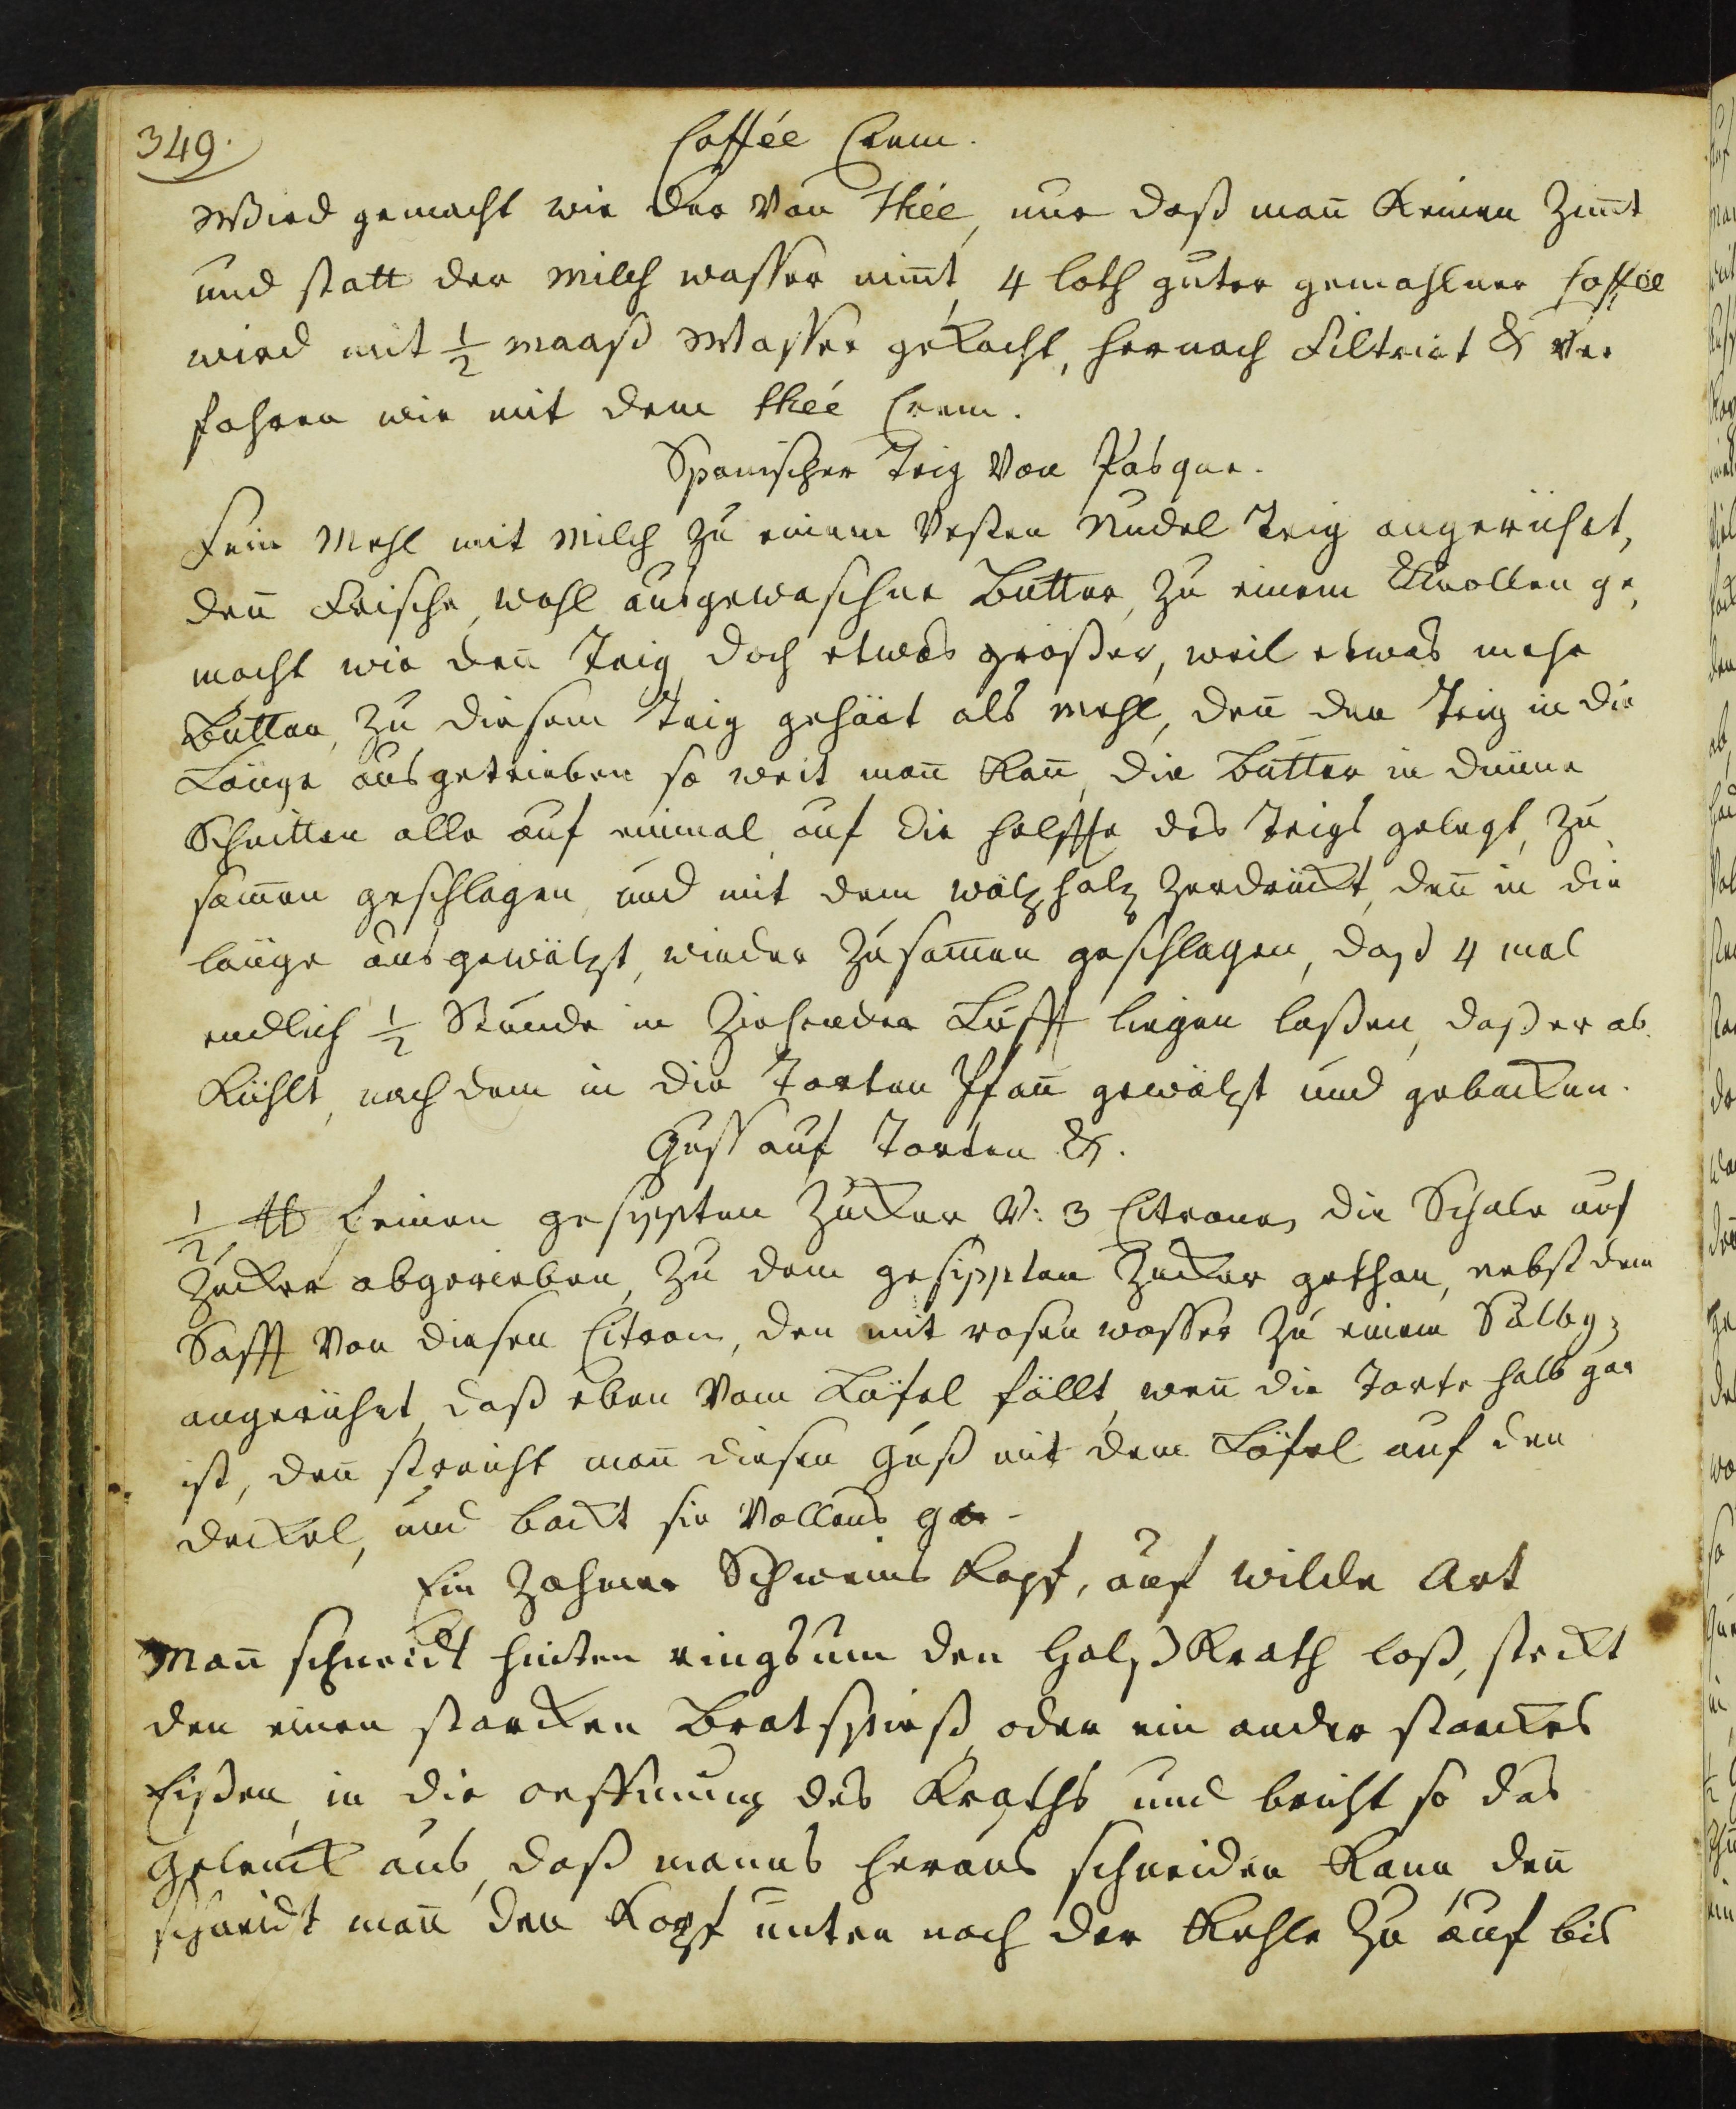 349.
Coffée Crem.
Wird gemacht wie der von Thée, nur daß man̄ keinen Zim̄t
und statt der Milch wasser nim̄t, 4 loth guter gemahlner Coffée
wird mit ½ maaß Wasser gekocht, hernach Filtrirt & ver
fahren wie mit dem theé Crem.
Spanischer Teig von Pasque.
Fein Mehl mit Milch zu einem vesten Nudel Teig angerührt,
den̄ Frische, wohl ausgewaschne Butter, zu einem Knollen ge,
macht wie den̄ Teig, doch etwas größer, weil etwas mehr
Butter, zu diesem Teig gehört als Mehl, den̄ den Teig in die
Länge ausgetrieben so weit man̄ kan̄, die Butter in dünne
Schnitten alle auf einmal auf die helffte des Teigs gelegt, zu
sam̄en geschlagen und mit dem wälz holz zerdrückt, den̄ in die
länge ausgewälzt, wieder zusam̄en geschlagen, daß 4 mal
endlich ½ Stunde in ziehender Lufft liegen laßen, daß er ab
kühlt, nach dem in die Torten Pfan̄ gewälzt und gebacken.
Guss auf Torten &.
½ ℔ feinen gesippten Zucker v: 3 Citronen die Schale auf
Zucker abgerieben, zu dem gesippten Zucker gethan, nebst dem
Safft von diesen Citron, den mit rosen wasser zu einem Sälbgʒ
angerührt, daß eben vom Löfel fällt, wen̄ die Torte halb gar
ist, den̄ streicht man̄ diesen Guß mit dem Löfel auf den
deckel, und backt sie vollends gar.
Ein Zahmer Schweins Kopf, auf wilde Art
Man̄ schneidt hinten ringsum den Halß Krath loß, steckt
den einen starcken Bratspieß, oder ein ander starckes
Eißen, in die oeffnung des Kraths und bricht so das
Gelenck aus, daß manns heraus schneiden kann den̄
schneidt man̄ den Kopf unten nach der Kehle zu auf bis